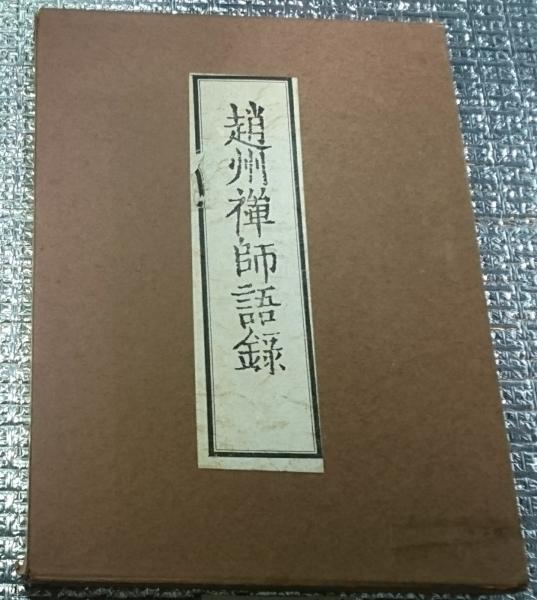 趙州禅師語録